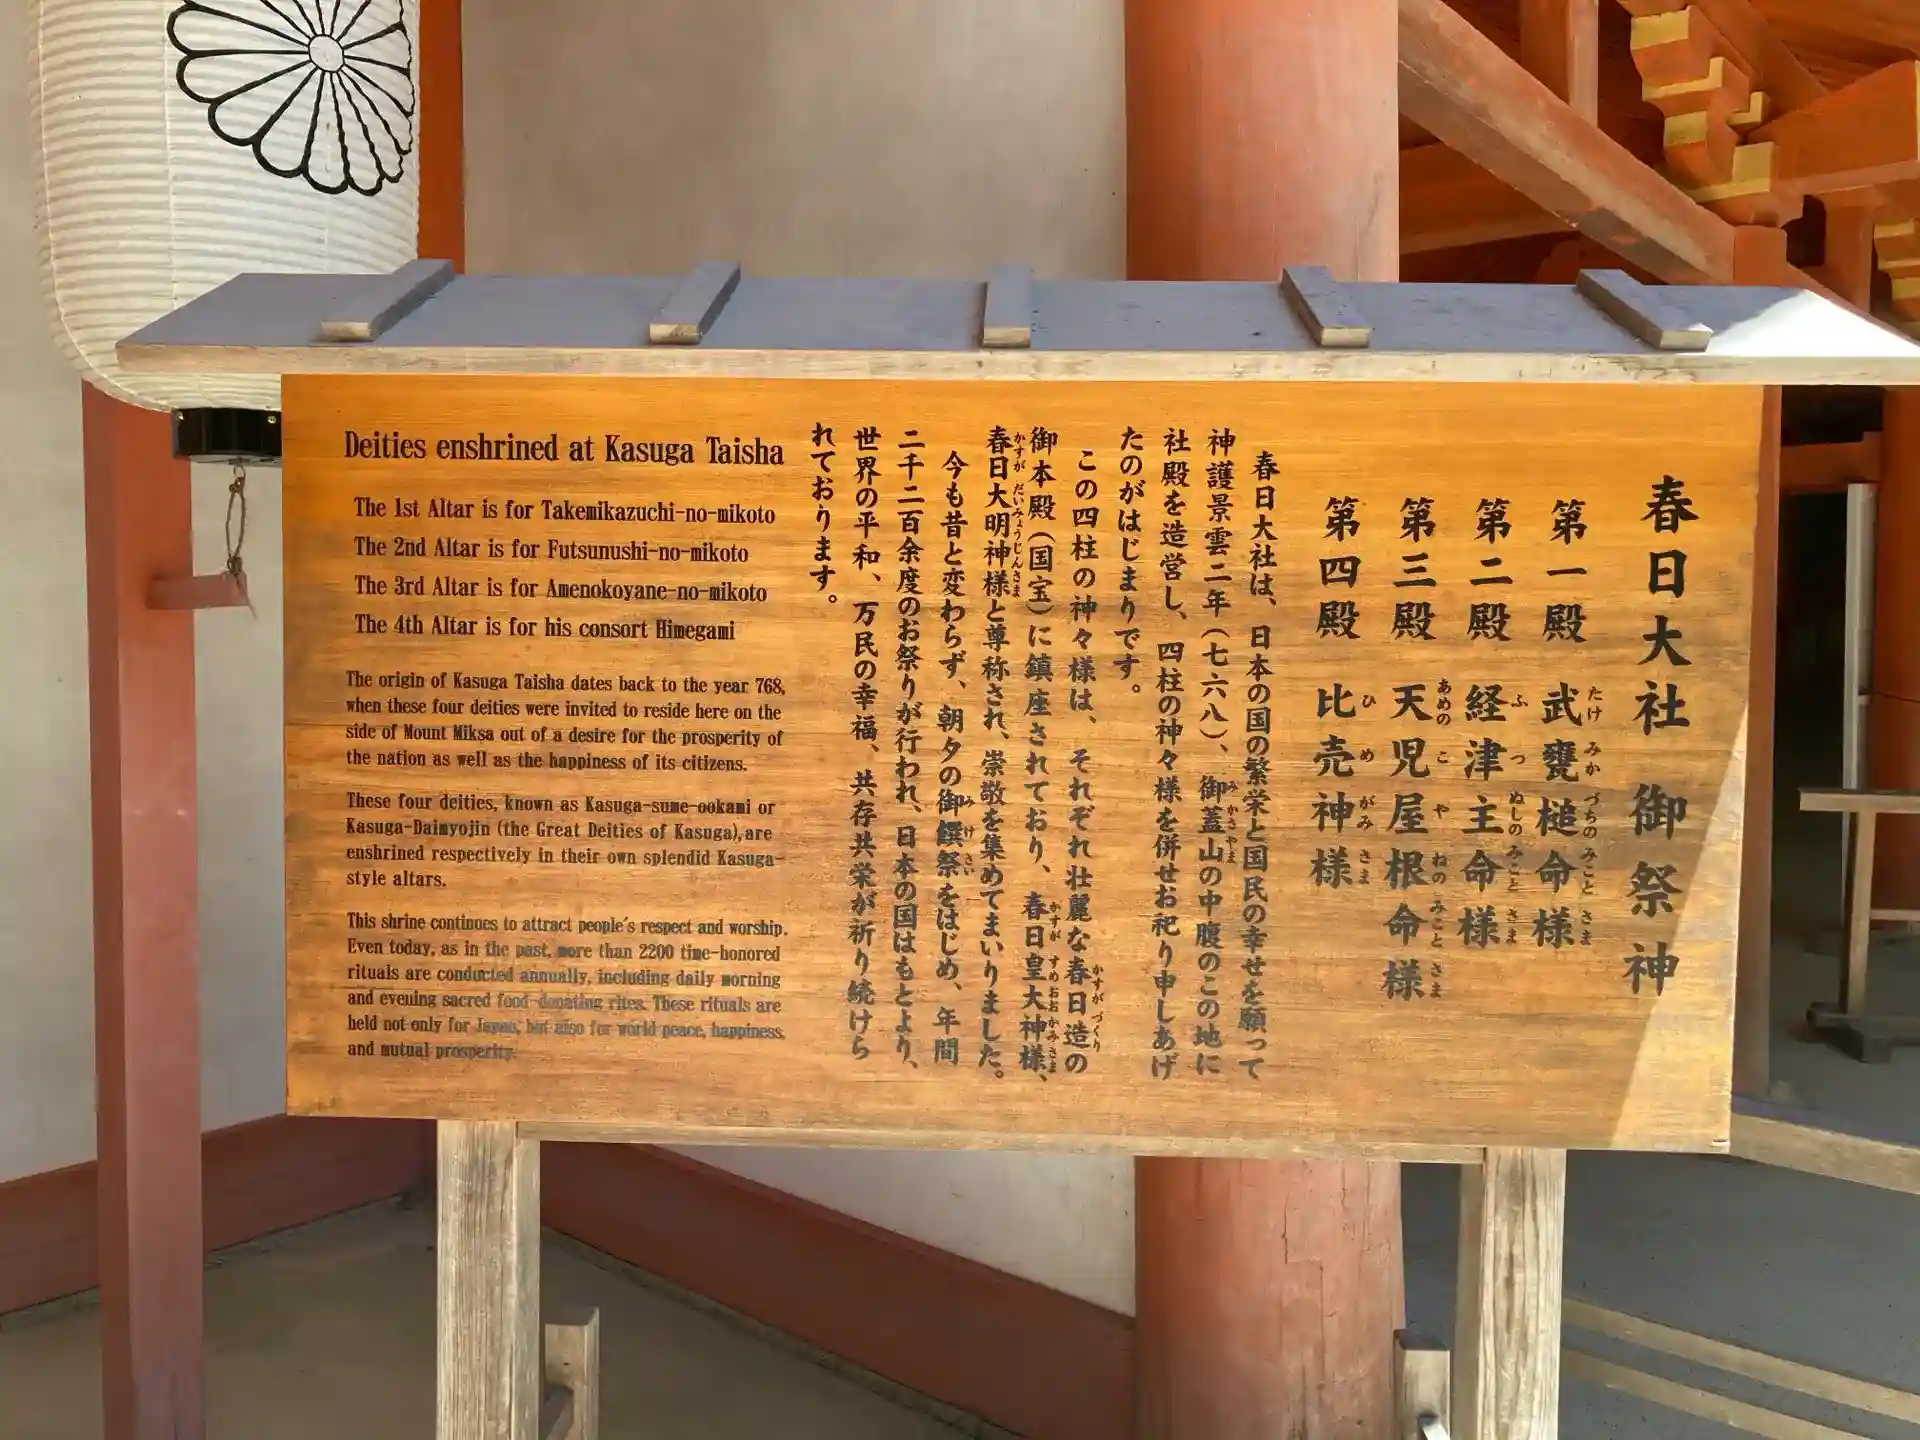 Deities enshrined at Kasuga Taisha
The 1st Altar is for Takemikazuchi-no-mikoto
The 2nd Altar is for Futsunushi-no-mikoto
The 3rd Altar is for Amenokoyane-no-mikoto
The 4th Altar is for his consort Himegami
The origin of Kasuga Taisha dates back to the year 768,
when these four deities were invited to reside here on the
side of Mount Miksa out of a desire for the prosperity of
the nation as well as the happiness of its citizens.
These four deities, known as Kasuga-sume-ookami or
Kasuga-Daimyojin (the Great Deities of Kasuga), are
enshrined respectively in their own splendid Kasuga-
style altars.
This shrine continues to attract people's respect and worship.
Even today, as in the past, more than 2200 time-honored
rituals are conducted annually, including daily morning
and evening sacred food-donating rites. These rituals are
held not only for Japan, but also for world peace, happiness,
and mutual prosperity.
春日大社 御祭神
第一殿 武甕槌命様
たけ みか づちの みこと さま
第二殿 経津主命様
ふ つ ぬしの みこと さま
第三殿 天児屋根命様
あめの こ や ねの みこと さま
第四殿 比売神様
ひ め がみ さま
春日大社は、日本の国の繁栄と国民の幸せを願って
神護景雲二年(七六八)、御蓋山の中腹のこの地に
み かさ やま
社殿を造営し、四柱の神々様を併せお祀り申しあげ
たのがはじまりです。
この四柱の神々様は、それぞれ壮麗な春日造の
かすが づくり
御本殿(国宝)に鎮座されており、春日皇大神様、
かすが すめ おお かみ さま
春日大明神様と尊称され、崇敬を集めてまいりました。
かすが だいみょうじん さま
今も昔と変わらず、朝夕の御饌祭をはじめ、年間
み け さい
二千二百余度のお祭りが行われ、日本の国はもとより、
世界の平和、万民の幸福、共存共栄が祈り続けら
れております。